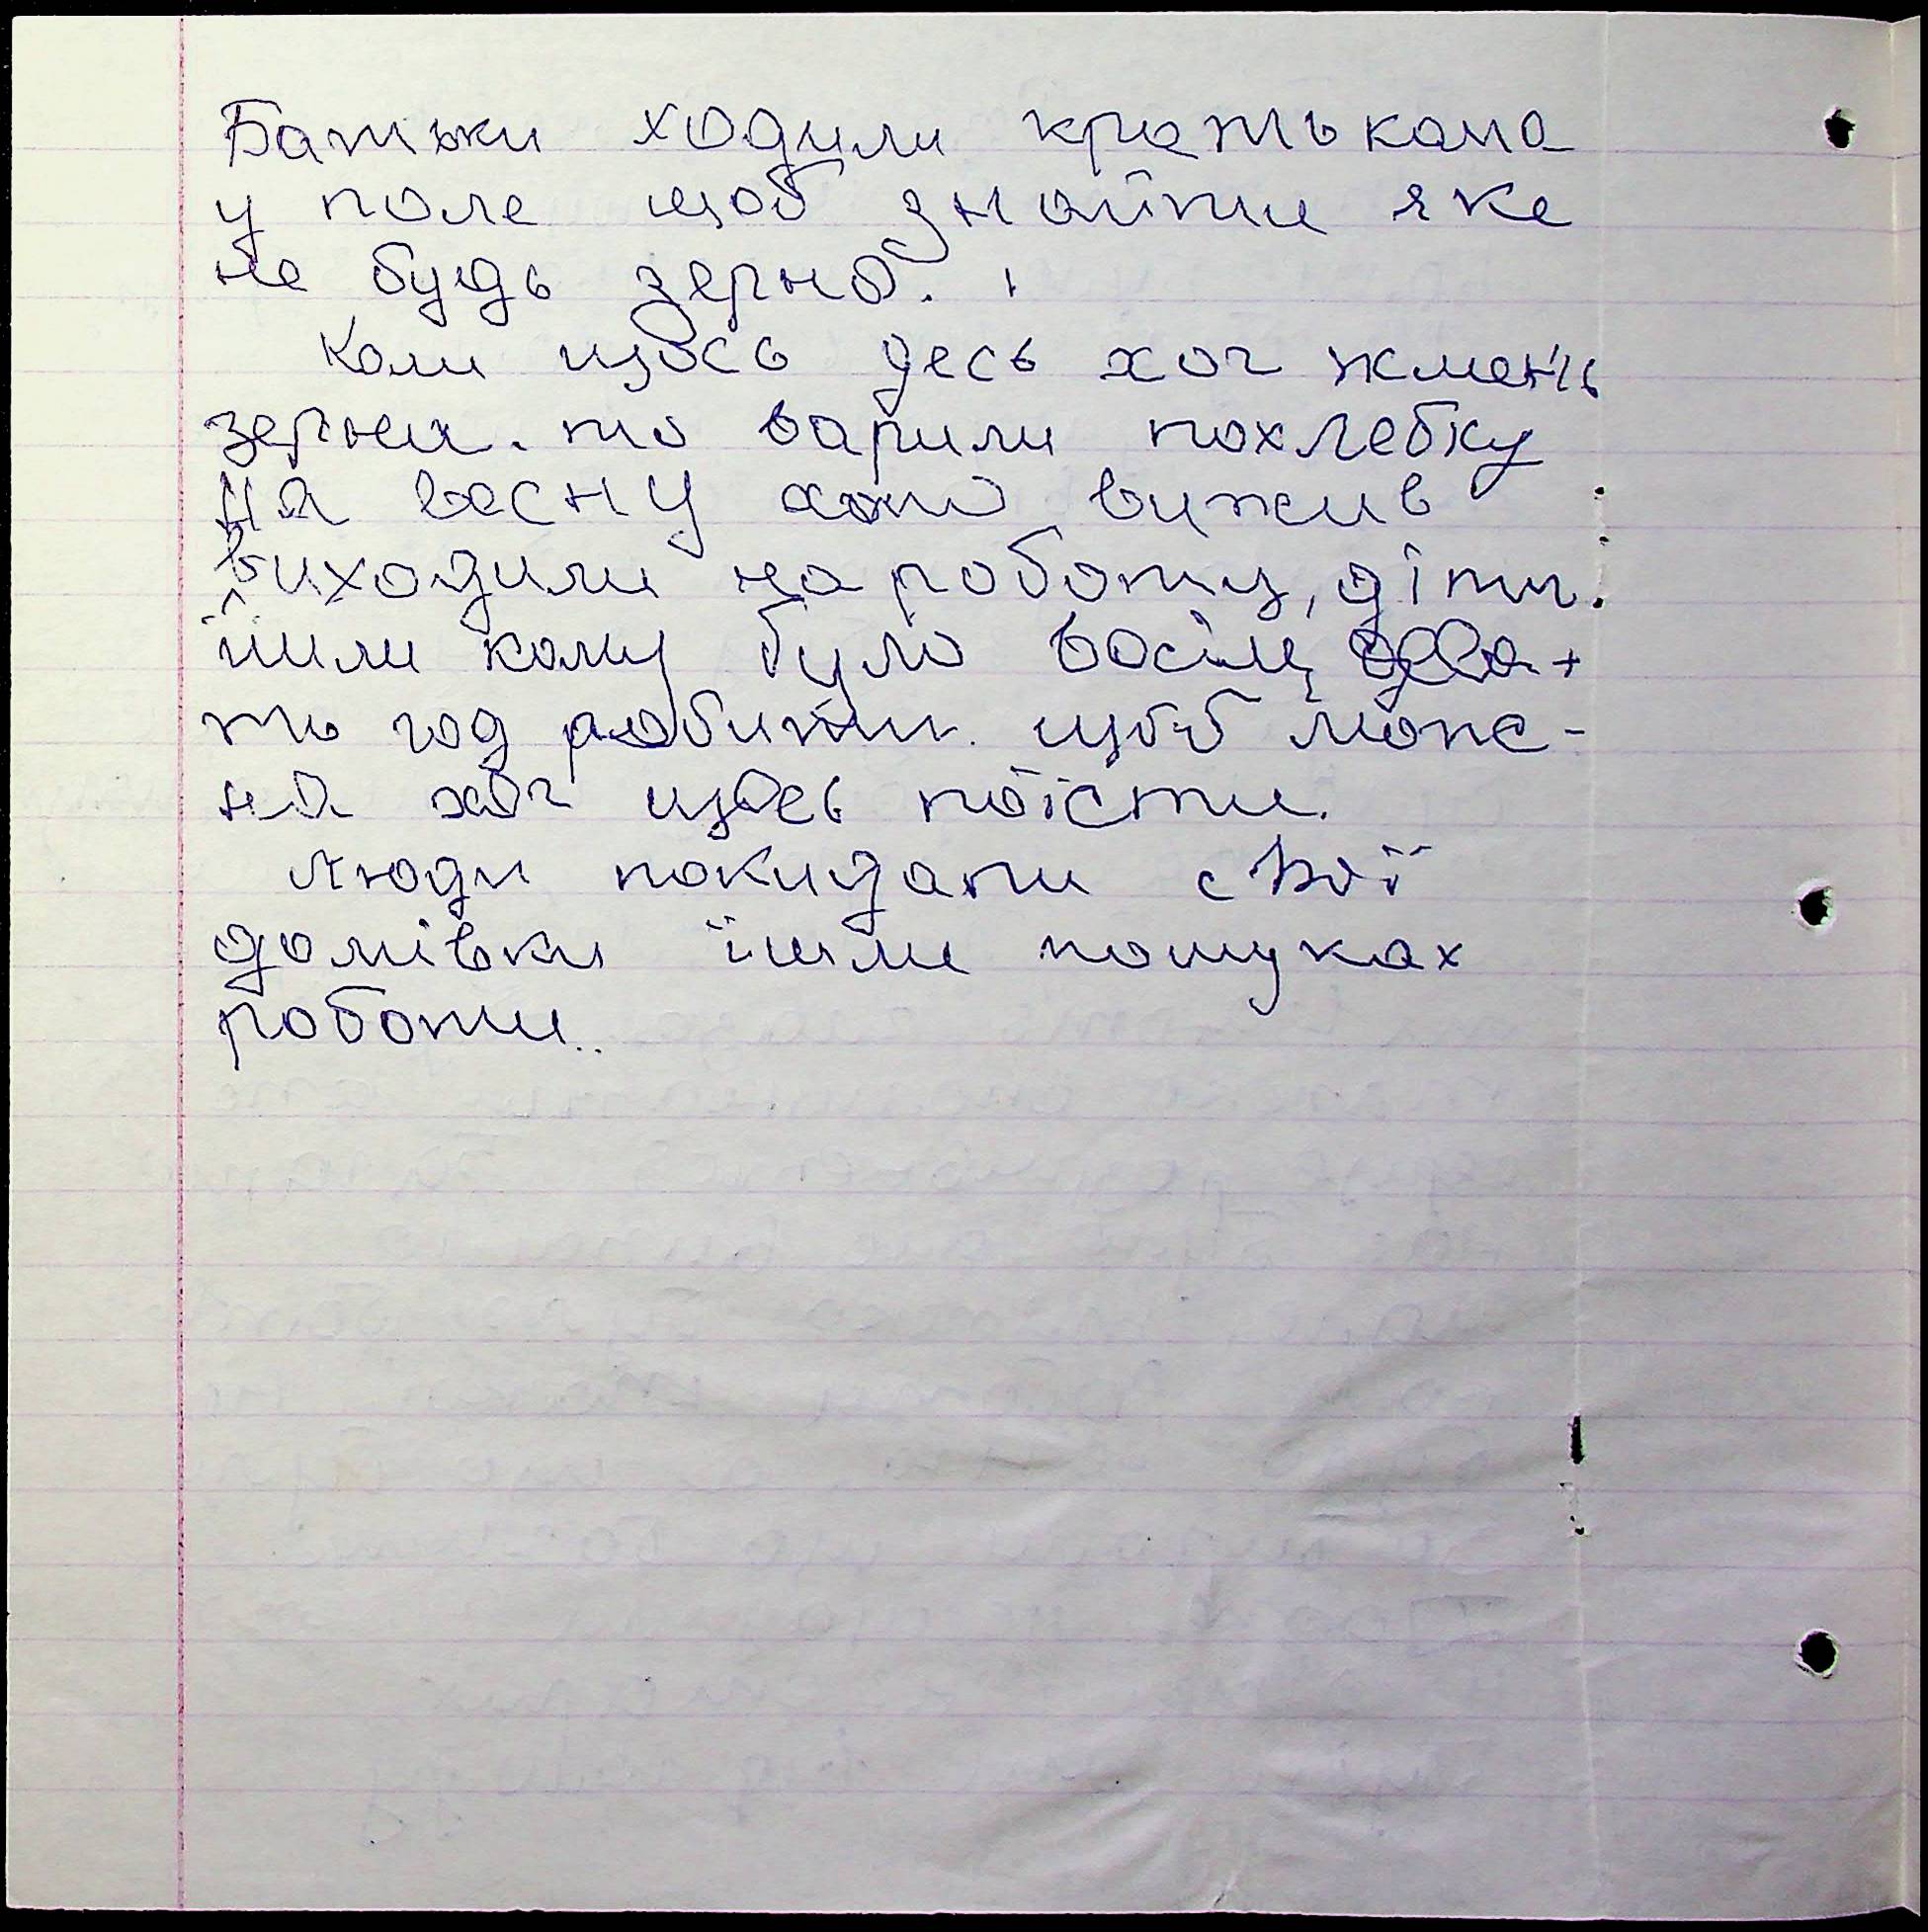 Батьки ходили кратькома
у поле щоб знайти яке
не будь зерно.
Коли щось десь хоч жмень
зерна. то варили похлебку
На весну хто вижив
виходили на роботу, діти.
йшли кому було восім, девя-
ть год робити. щоб можс-
на хоч щось поїсти.
Люди покидали свої
домівки їшли пошуках
роботи..